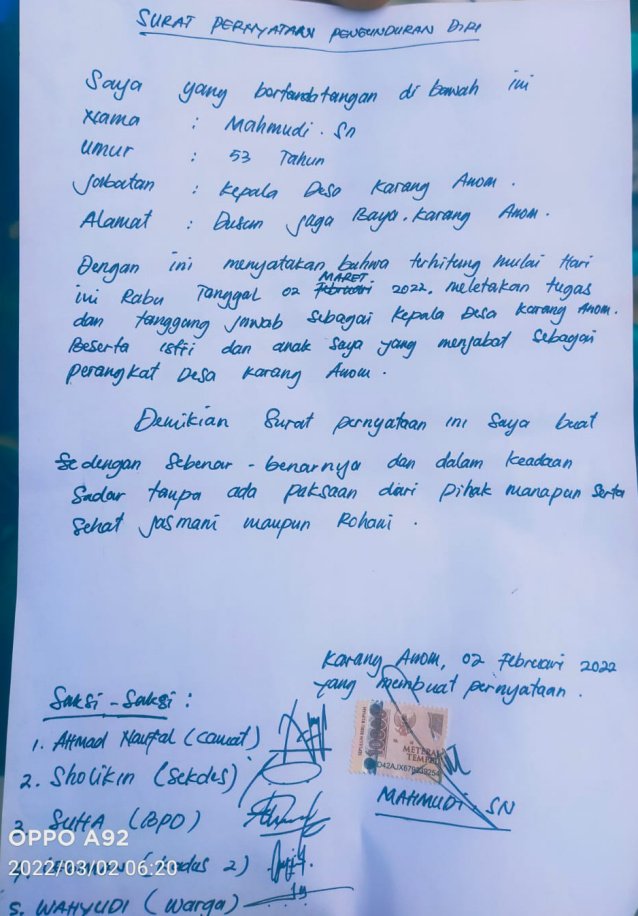 SURAT PERNYATAAN PENGUNDURAN DIRI
Saya yang bertandatangan di bawah ini
Nama : Mahmudi. Sn
Umur : 53 Tahun
Jabatan : Kepala Desa Karang Anom.
Alamat : Dusun Jaga Baya. Karang Anom.
Dengan ini menyatakan bahwa terhitung mulai Hari
MARET
ini Rabu Tanggal 02 Februari 2022. meletakan tugas
dan tanggung jawab sebagai Kepala Desa Karang Anom.
Beserta istri dan anak saya yang menjabat sebagai
perangkat Desa Karang Anom.
Demikian Surat pernyataan ini Saya buat
Se dengan Sebenar-benarnya dan dalam keadaan
Sadar tanpa ada paksaan dari pihak manapun serta
Sehat jasmani maupun Rohani.
Karang Anom, 02 Februari 2022
yang membuat pernyataan.
Saksi-Saksi :
1. Ahmad Naufal (camat)
2. Sholikin (Sekdes)
3. SUHA (BPD)
METERAI
TEMPEL
MAHMUDI. SN
OPPO A92
2022/03/02 06:20
4. (kadus 2)
5. WAHYUDI (warga)